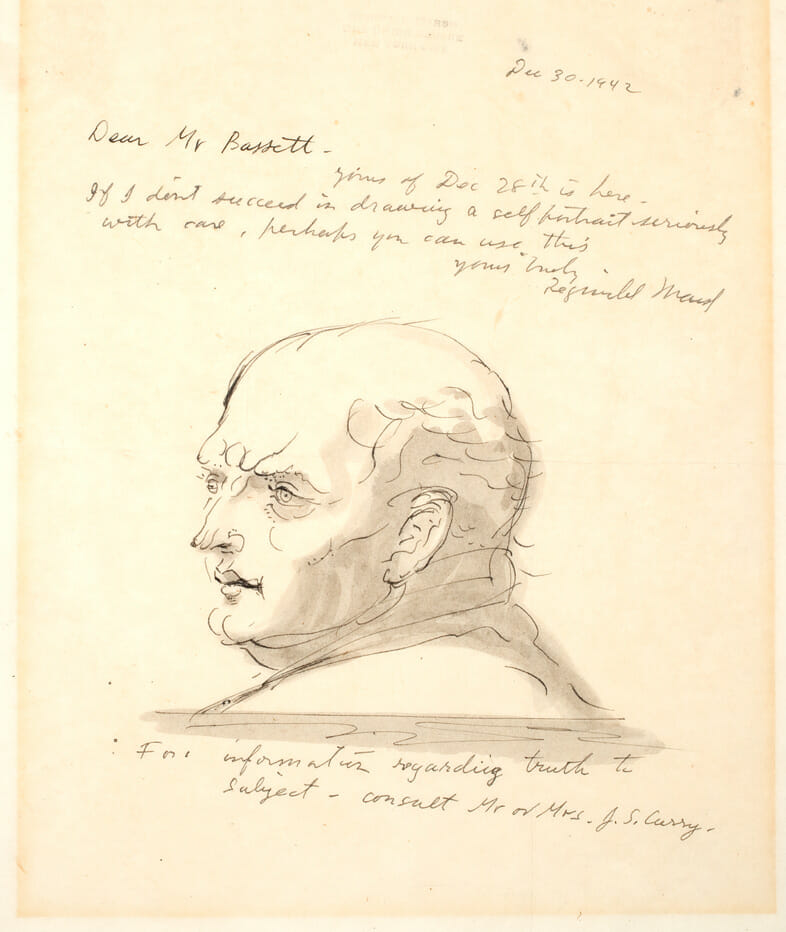 Dec 30-1942
Dear Mr Bassett -
yours of Dec 28th is here -
If I don't succeed in drawing a self portrait seriously
with care, perhaps you can use this
yours truly
Reginald Marsh
For information regarding truth to
subject - consult Mr or Mrs. J. S. Curry.